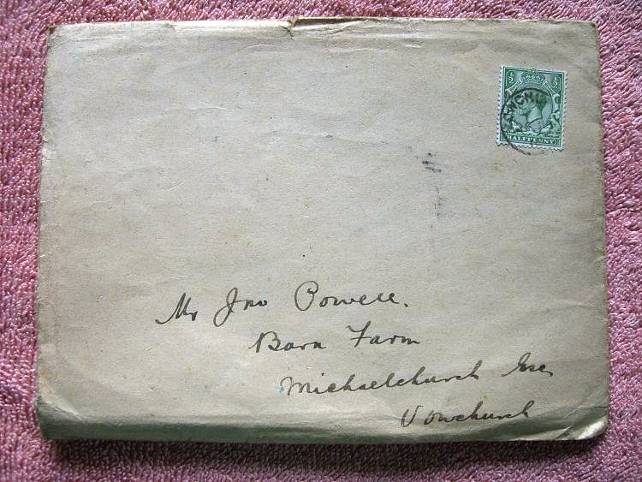 ½ ½
HALFPENNY
Mr Jno Powell.
Barn Farm
Michaelchurch Esc
Vowchurch